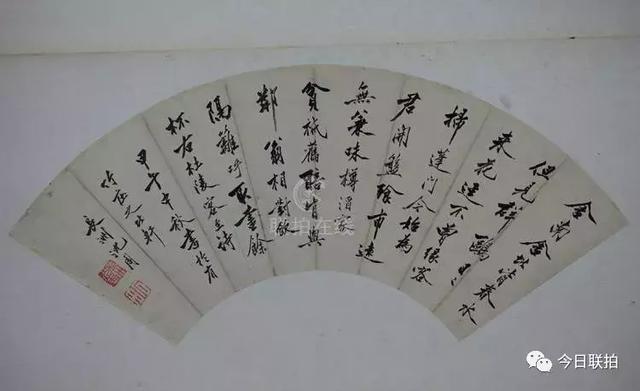 舍南舍北皆春水
但見群鷗日日
来花迳不曾缘客
掃蓬門今始為
君開盤飱市遠
無兼味樽酒家
貧祗舊醅肯與
鄰翁相對飲
隔籬呼取盡餘
杯右杜陵客至詩
甲午中秋書於有
竹
泉州
联拍在线
今日联拍